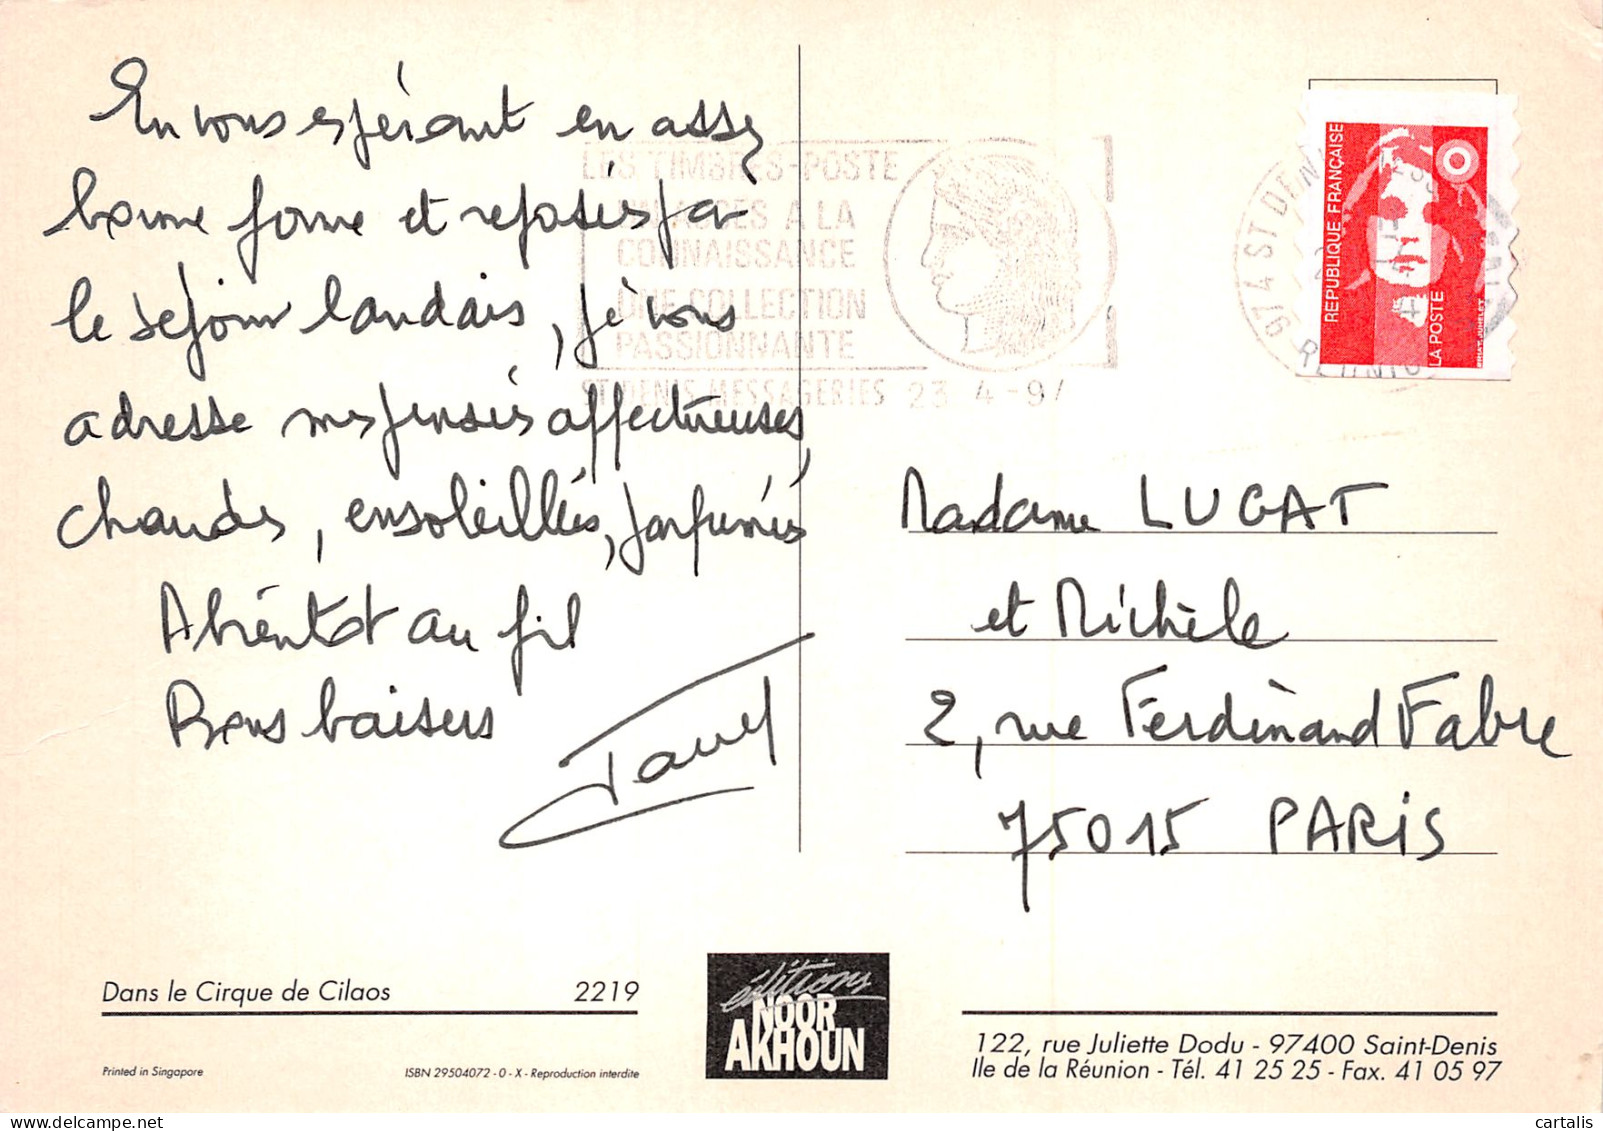 En vous espérant en assez
bonne forme et reposées par
le séjour landais, je vous
adresse mes pensées affectueuses,
chaudes, ensoleillées, parfumées
A bientôt au fil
Bons baisers
LES TIMBRES-POSTE
A LA
CONNAISSANCE
UNE COLLECTION
PASSIONNANTE
ST DENIS MESSAGERIES 23 4-97
974 ST DENIS
REUNION
REPUBLIQUE FRANÇAISE
LA POSTE
Madame LUGAT
et Michèle
2, rue Ferdinand Fabre
75015 PARIS
Dans le Cirque de Cilaos 2219
Printed in Singapore
ISBN 29504072 - 0 - X - Reproduction interdite
éditions
NOOR
AKHOUN
122, rue Juliette Dodu - 97400 Saint-Denis
Ile de la Réunion - Tél. 41 25 25 - Fax. 41 05 97
cartalis